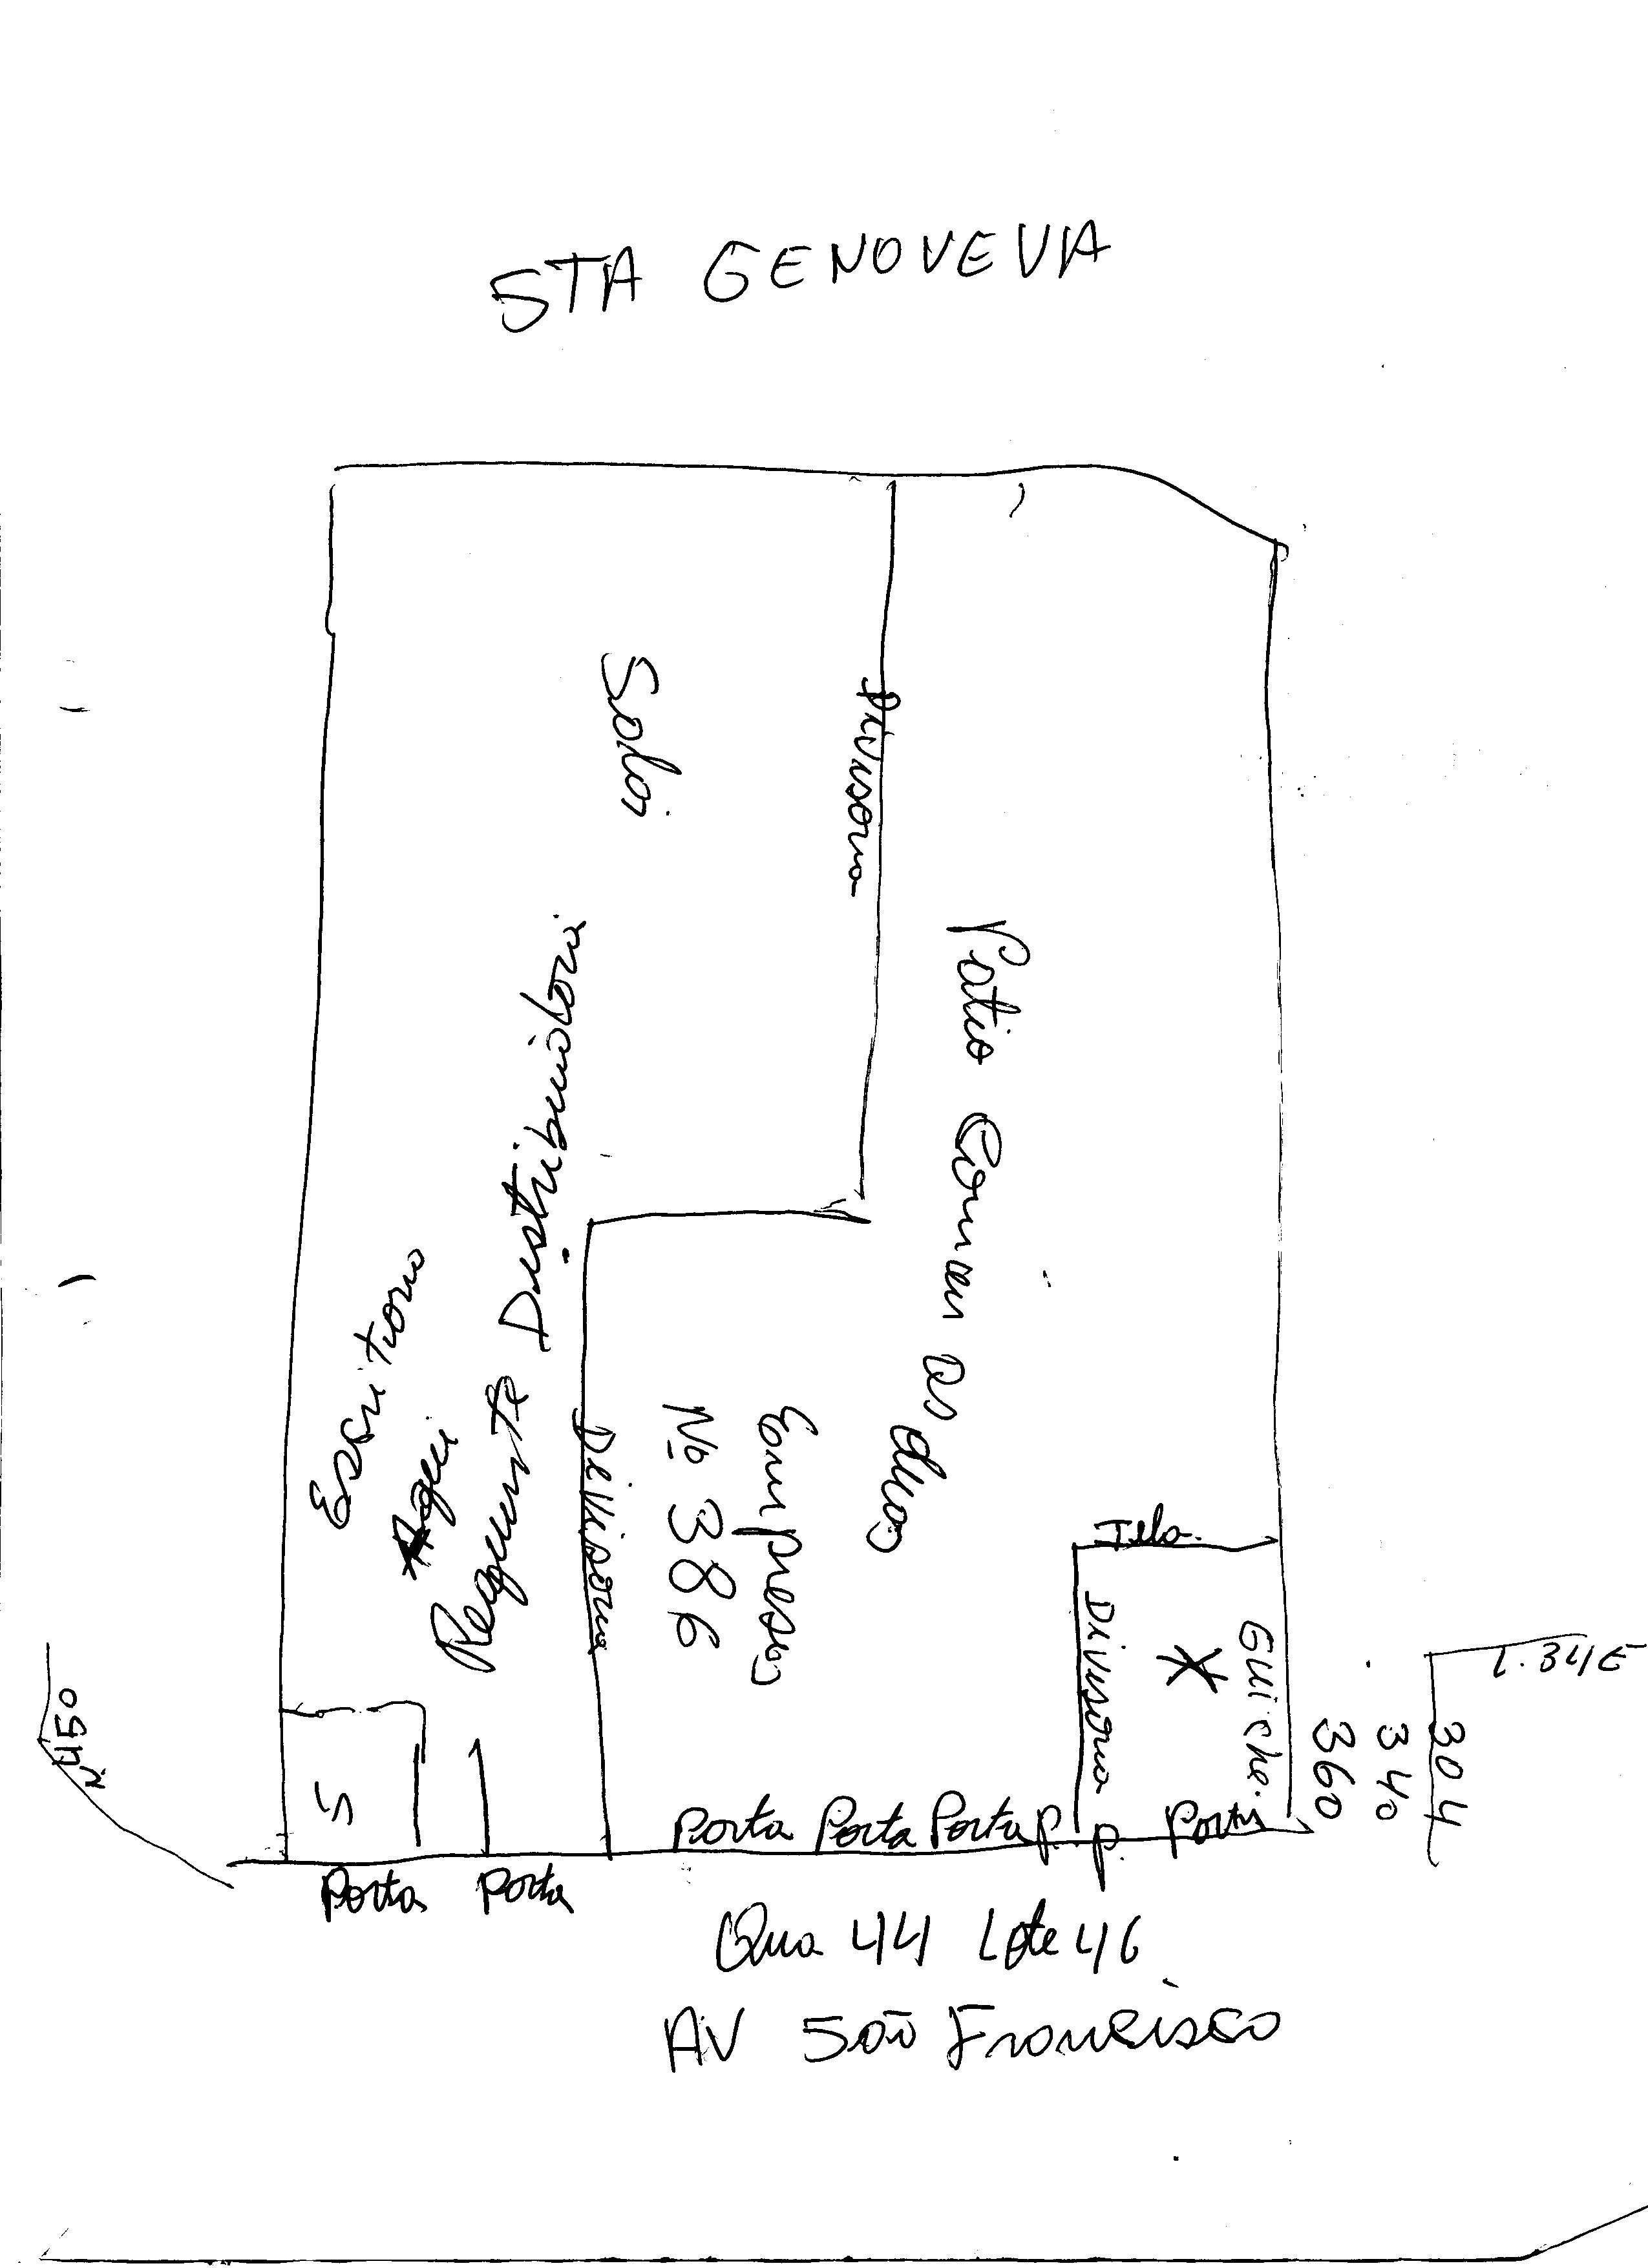 STA GENOVEVA
Sala
Divisoria
Patio Comum as duas
Empresas
Nº 386
Escritorio
Aqui
Requinte Distribuidora
Divisoria
Tela
Divisoria
Guiche
304
340
360
Nº 450
S
Porta Porta Porta P. P. Porta
Porta Porta
Qua 44 Lote 46
AV São Francisco